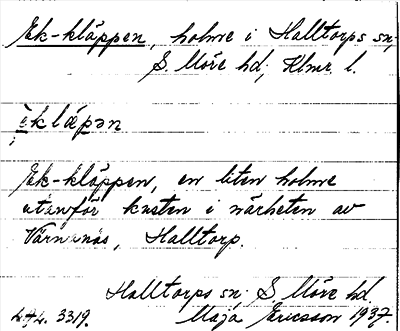 Ek-kläppen, holme i Halltorps sn;
S Möre hd; Klmr. l.
èklæpən
Ek-kläppen, en liten holme
utanför kusten i närheten av
Värnanäs, Halltorp.
Halltorps sn; S. Möre hd.
3319. Maja Ericsson 1937.